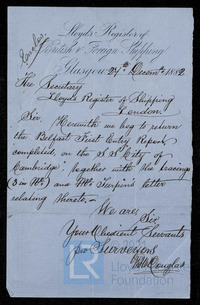 Lloyd's Register of
British & Foreign Shipping
Glasgow 27th Decem 1882
The Secretary
Lloyds Register of Shipping
London.
Sir,
Herewith we beg to return
the Belfast First Entry Report
completed, on the S.S. "City of
Cambridge": together with the tracings
(3 in No) and Mr letter
relating thereto,-
We are
Sir
Your Obedient Servants
pro Surveyors
Douglas